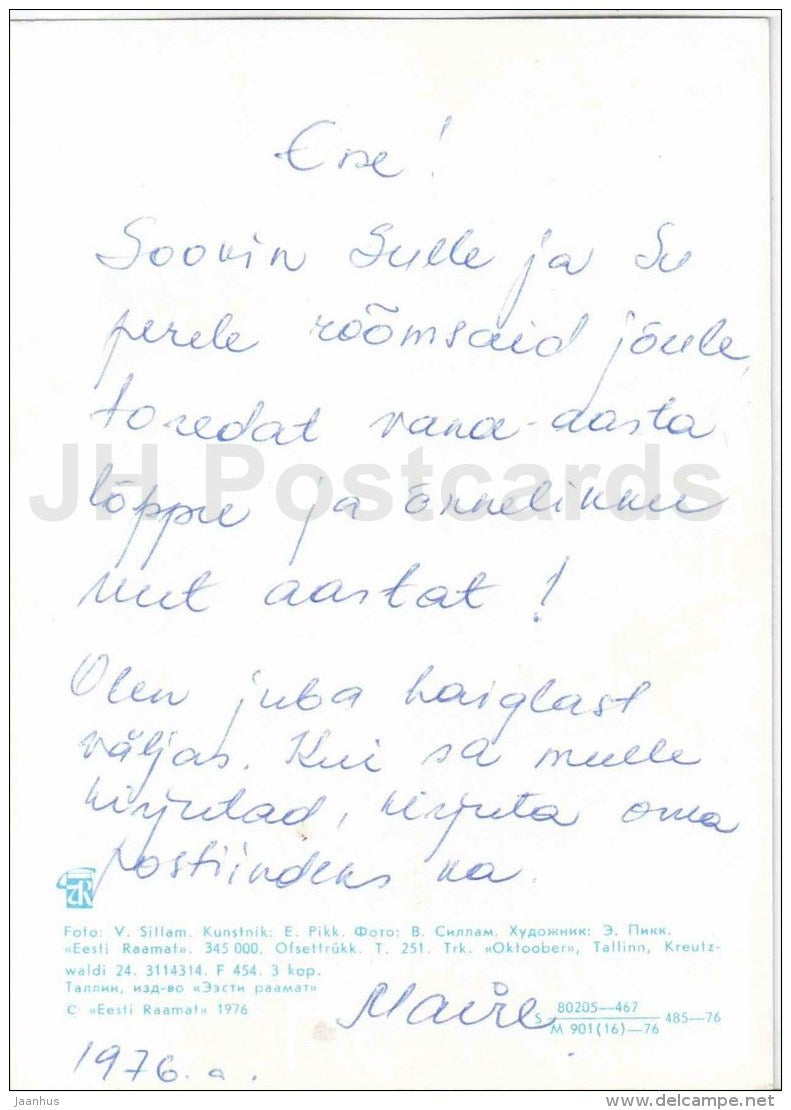 Ene!
Soovin Sulle ja Su
perele rõõmsaid jõule,
toredat vana-aasta
JH Postcards
lõppu ja õnnelikku
uut aastat!
Olen juba haiglast
väljas. Kui sa mulle
kirjutad, kirjuta oma
postiindeks ka.
Foto: V. Sillam. Kunstnik: E. Pikk. Фото: В. Силлам. Художник: Э. Пикк.
«Eesti Raamat». 345 000. Ofsettrükk. T. 251. Trk. «Oktoober», Tallinn, Kreutz-
waldi 24. 3114314. F 454. 3 kop.
Таллин, изд-во «Ээсти раамат»
© «Eesti Raamat» 1976
Maire
S 80205—467
M 901(16)—76 485—76
1976. a.
Jaanhus
www.delcampe.net